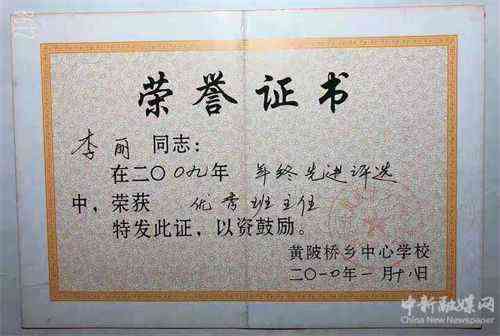 荣誉证书
李丽同志：
在二〇〇九年 年终先进评选
中，荣获 优秀班主任
特发此证，以资鼓励。
黄陂桥乡中心学校
二〇一〇年一月十八日
中新融媒网
China New Newspaper